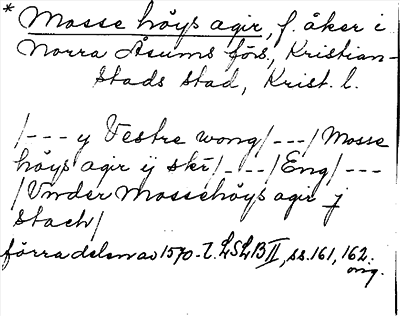 * Mosse höys agir, f. åker i
Norra Åsums förs, Kristian-
stads stad, Krist. l.
/--- y Vestre wong/---/Mosse
höys agir ij skr/---/Eng/---
/Vnder Mossehöys agir j
stach/
förra delen av 1570-t. LSLB II, ss. 161, 162.